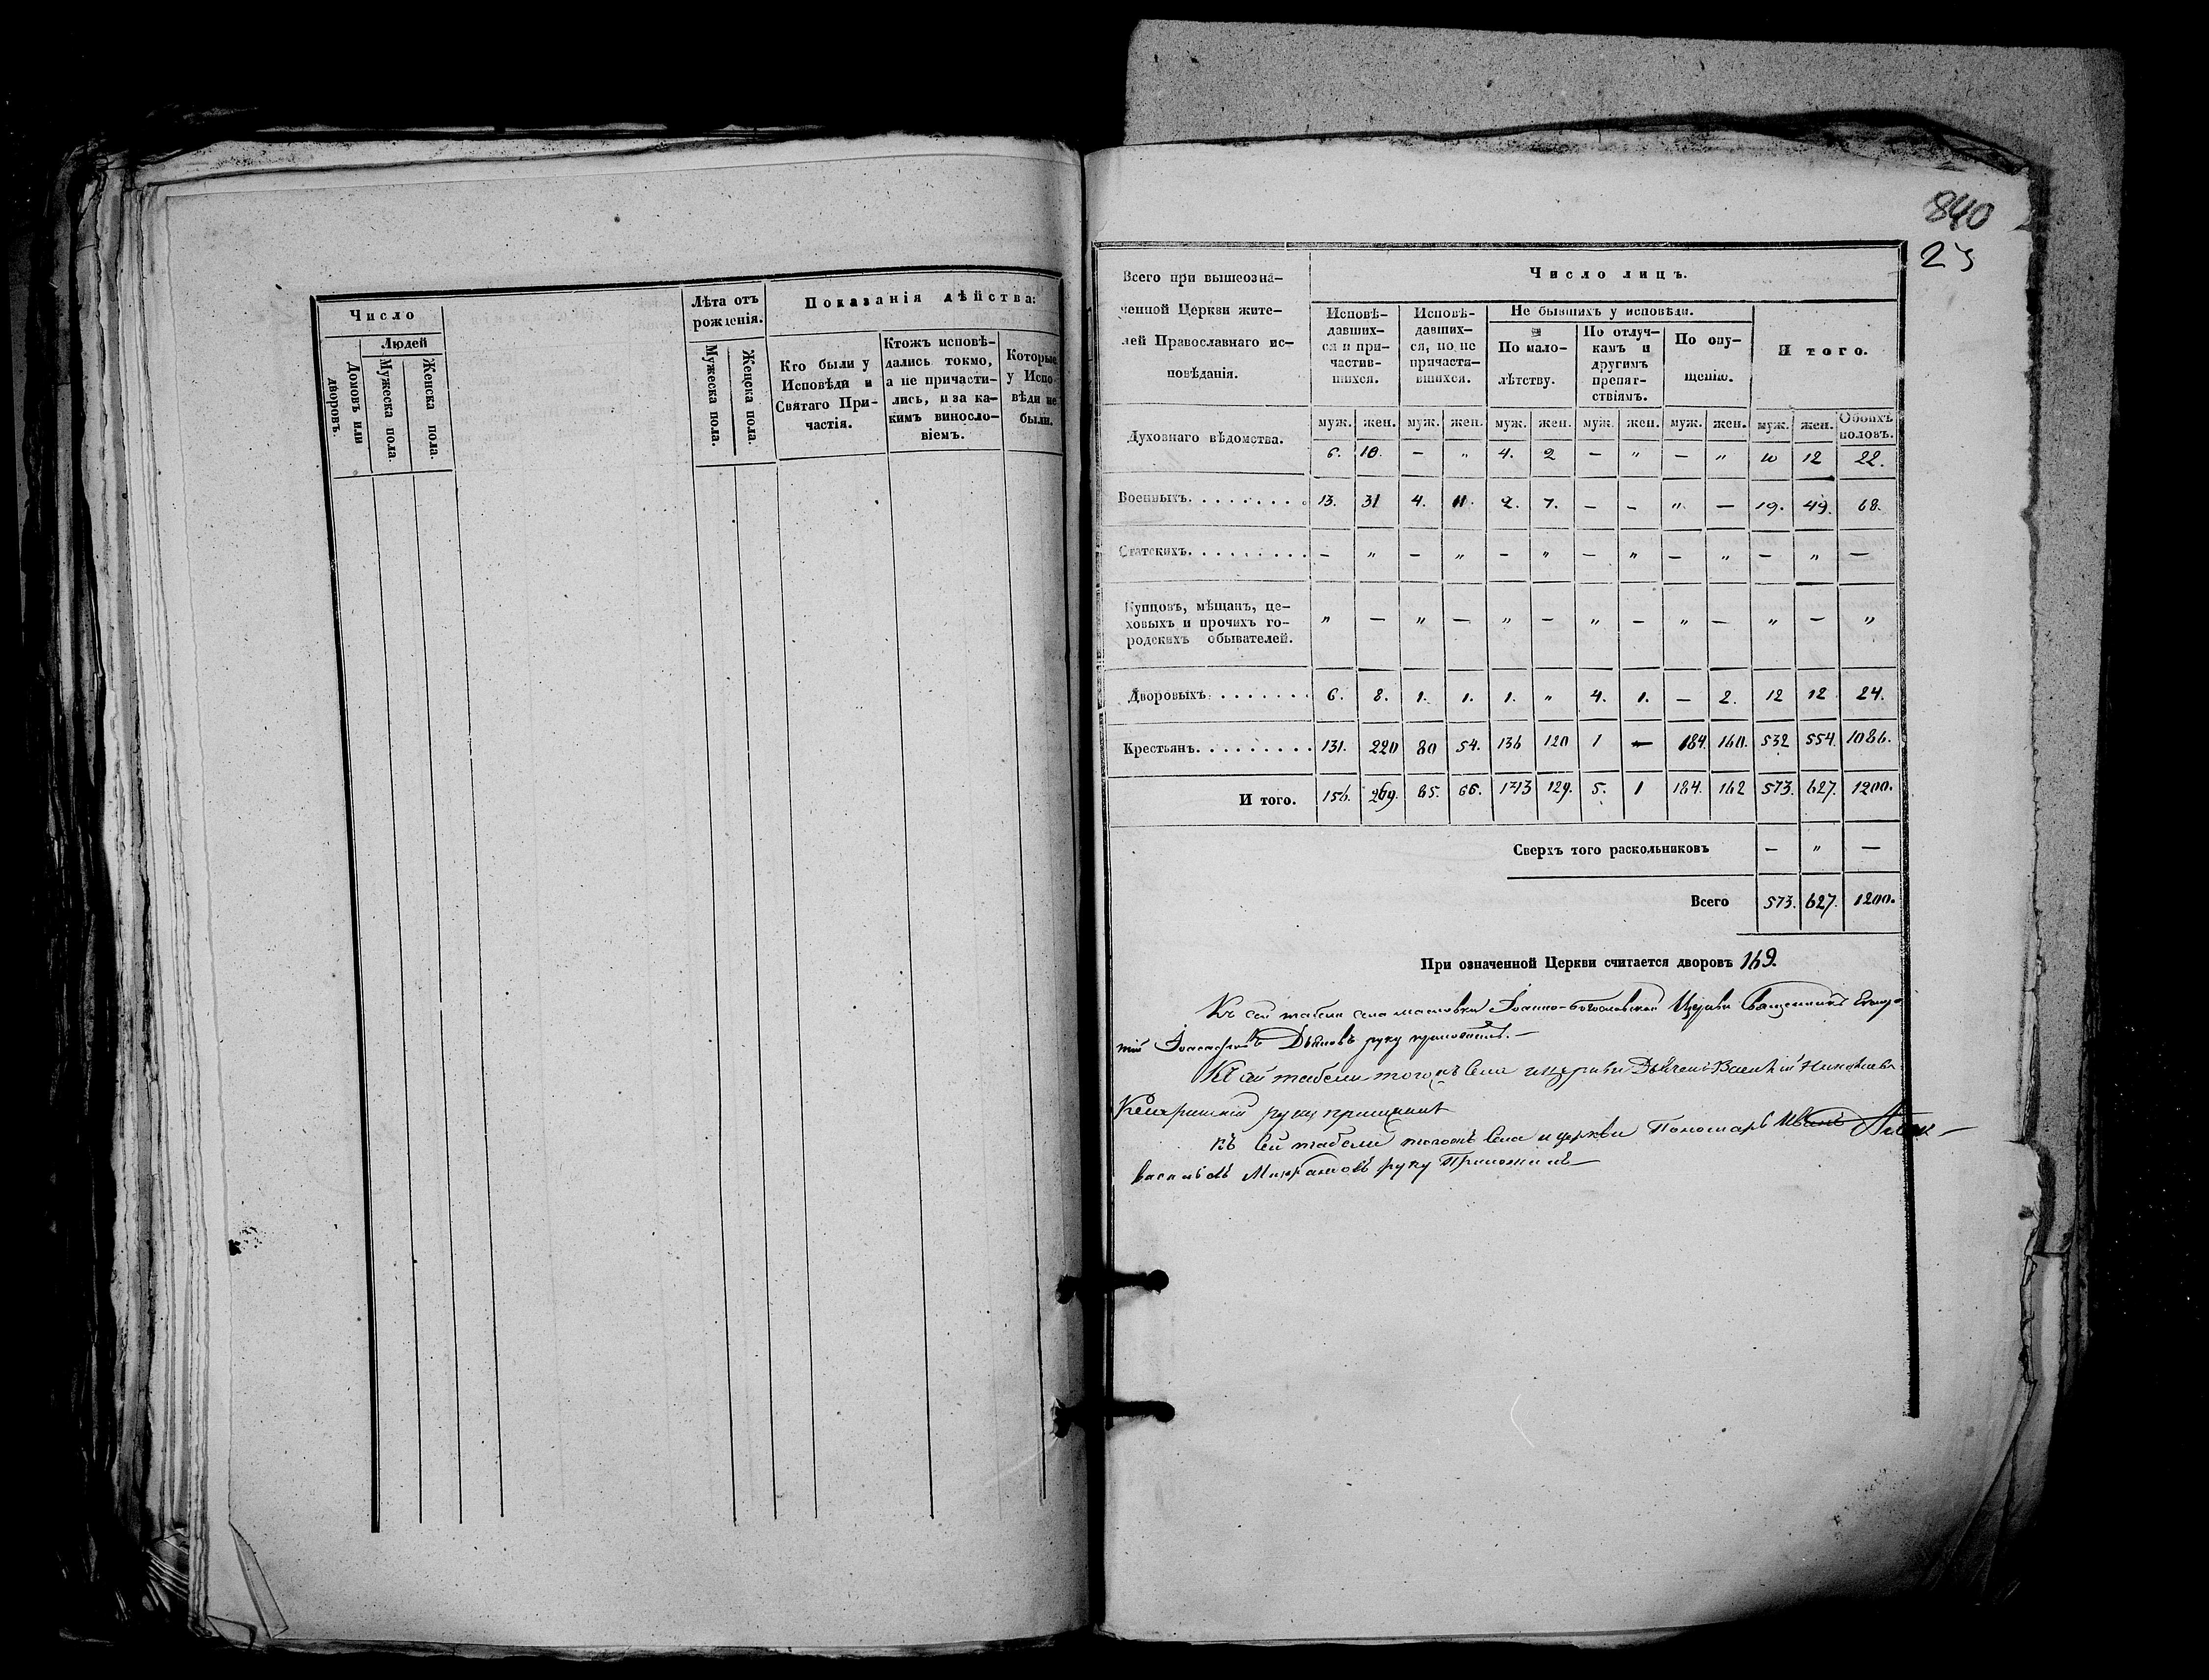 Число
Людей
Домовъ или дворовъ.
Мужеска пола.
Женска пола.
Лѣта отъ рожденія.
Мужеска пола.
Женска пола.
Показанія дѣйства:
Кто были у
Исповѣди и
Святаго При-
частія.
Ктожъ исповѣ-
дались токмо,
а не причасти-
лись, и за ка-
кимъ виносло-
віемъ.
Которые
у Испо-
вѣди не
были.
840
Всего при вышеозна-
ченной Церкви жите-
лей Православнаго ис-
повѣданія.
Число лицъ.
Исповѣ-
давших-
ся и при-
частив-
шихся.
Исповѣ-
давших-
ся, но не
причасти-
вшихся.
Не бывшихъ у исповѣди.
По мало-
лѣтству.
По отлуч-
камъ и
другимъ
препят-
ствіямъ.
По опу-
щенію.
И того.
муж. жен. муж. жен. муж. жен. муж. жен. муж. жен. муж. жен. Обоихъ половъ.
Духовнаго вѣдомства. 6. 10. — „ 4. 2 — „ — „ 10 12 22.
Военныхъ. 13. 31 4. 11. 2. 7. — — „ — 19. 49. 68.
Статскихъ. — „ — „ — „ — „ — „ — „ —
Купцовъ, мѣщанъ, це-
ховыхъ и прочихъ го-
родскихъ обывателей. „ — „ — „ — „ — „ — „ — „
Дворовыхъ 6. 8. 1. 1. 1. „ 4. 1. — 2. 12 12 24.
Крестьянъ. 131. 220 80 54. 136 120 1 — 184. 160. 532 554. 1086.
И того. 156. 269. 85. 66. 143 129. 5. 1 184. 162 573. 627. 1200.
Сверхъ того раскольниковъ — „ —
Всего 573. 627. 1200.
При означенной Церкви считается дворовъ 169.
Къ сей табели села Іоанно-Богословской Церкви Священникъ
руку приложилъ.—
Къ сей табели тогожъ села и церкви Николаевъ
руку
Къ сей табели тогожъ села и церкви Пономарь Иванъ
руку Приложилъ—